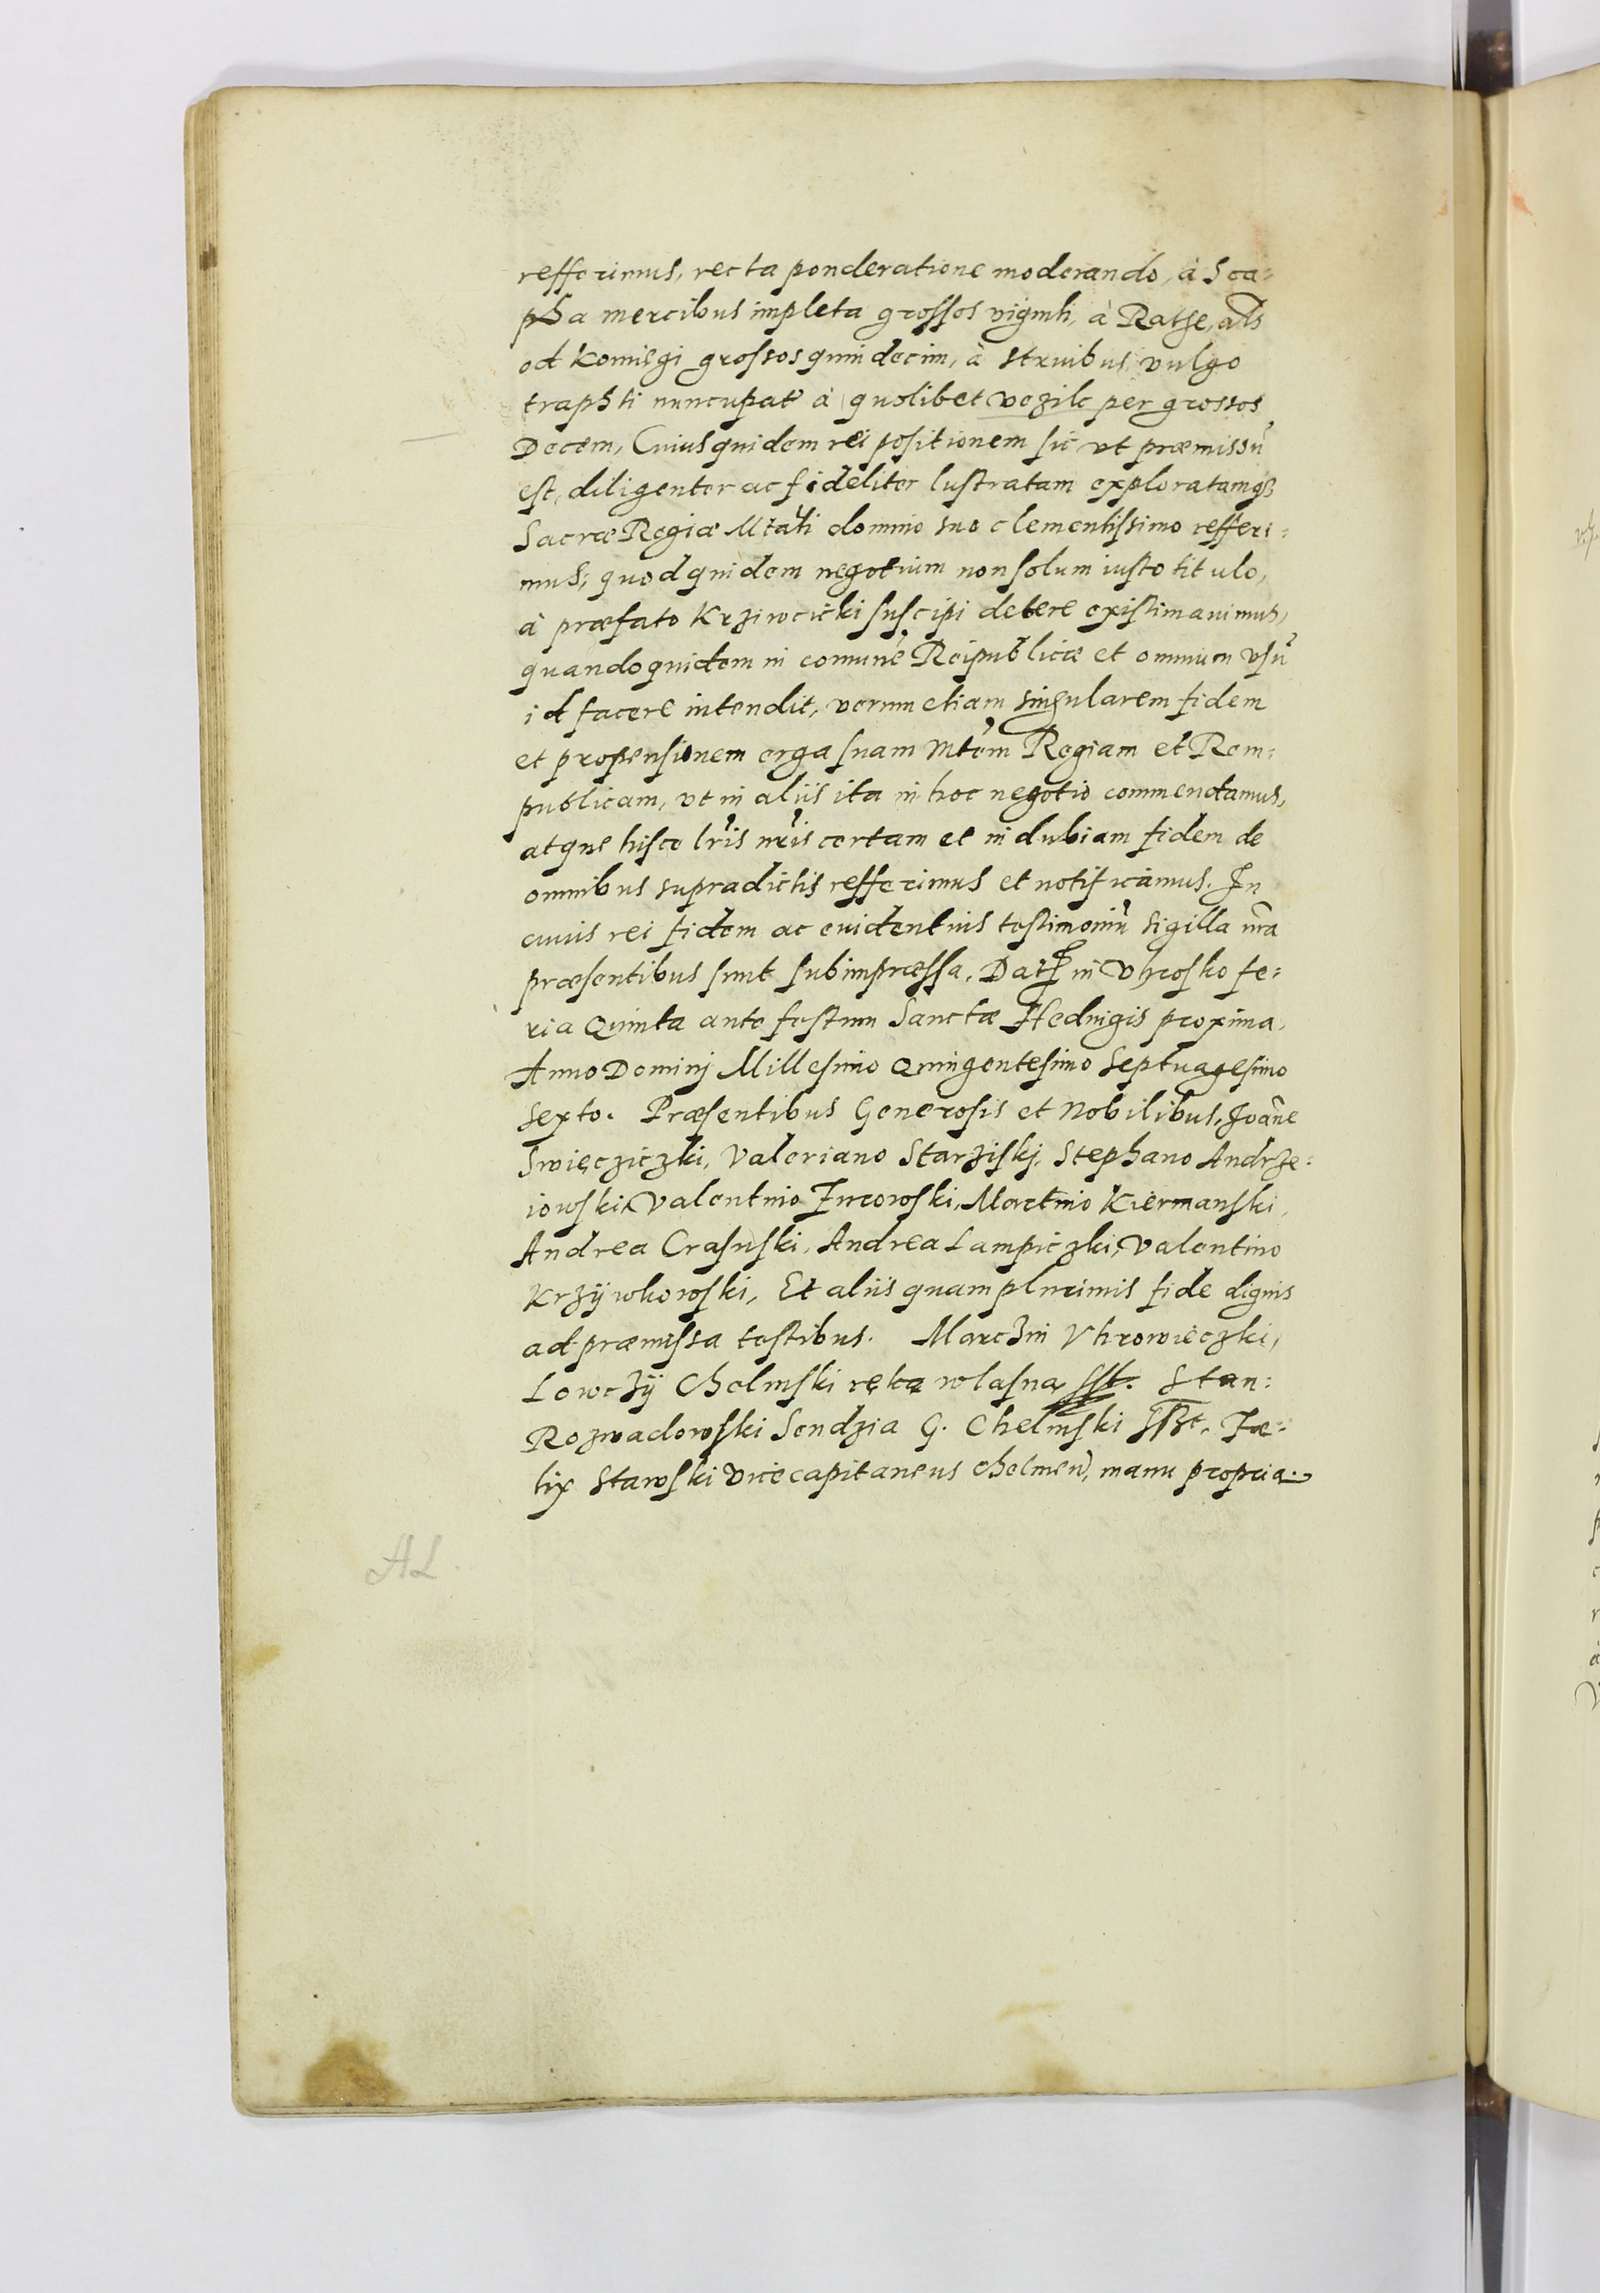 refferimus, recta ponderatione moderando, à Sca=
pha mercibus impleta grossos viginti, à Rathe, als
od Komiegi grossos quindecim, à struibus vulgo
traphti nuncupat à quolibet vezile per grossos
Decem, Cuiusquidem rei positionem sic vt præmissũ
est, diligenter ac fideliter lustratam exploratamqȝ
Sacræ Regiæ Mtati domino suo clementissimo refferi=
mus, quodquidem negotium non solum iusto titulo,
à præfato Krziwcicki suscipi debere existimauimus,
quandoquidem in comune Reipublicæ et omnium vsũ
id facere intendit, verum etiam singularem fidem
et propensionem erga suam Mtem Regiam et Rem=
publicam, vt in aliis ita in hoc negotio commendamus,
atque hisce lris nris certam et indubiam fidem de
omnibus supradictis refferimus et notificamus. In
cuius rei fidem ac euidentius testimoniũ sigilla nra
præsentibus sunt subimpræssa. Dat in Vhrosko fe=
ria Quinta ante festum Sanctæ Heduigis proxima,
Anno Dominj Millesimo Quingentesimo Septuagesimo
Sexto. Præsentibus Generosis et Nobilibus, Joãne
Swięcziczki, Valeriano Starziskj, Stephano Andrze=
iowski, Valentino Jurowski, Martino Kiermanski,
Andrea Crasuski, Andrea Lampiczki, Valentino
Krzÿwkowski, Et aliis quam plurimis fide dignis
ad præmissa testibus. Marczin Vhrowieczki,
Lowczÿ Chelmski ręką wlasną sst. Stan=
Rozwadowski Sendzia G. Chelmski sst. Fæ=
lix Stawski vicecapitaneus Chelmen, manu propria.
AL.